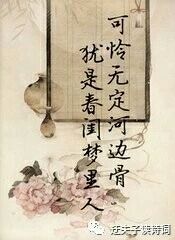 可怜无定河边骨
犹是春闺梦里人
汪夫子侃诗词